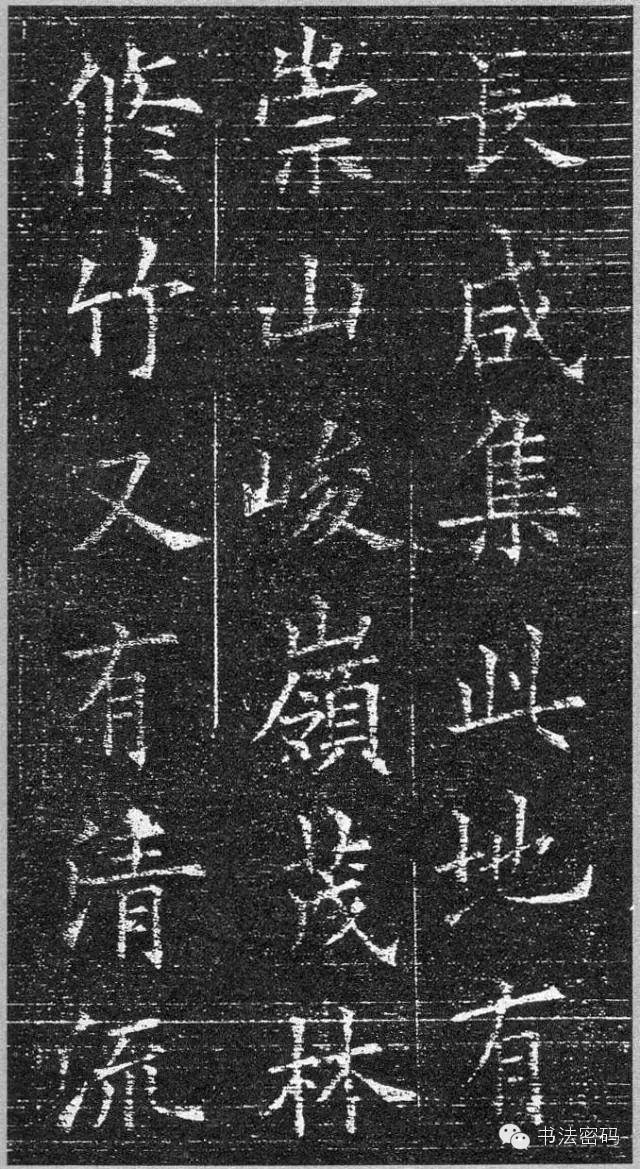 長咸集此地有
崇山峻嶺茂林
修竹又有清流
书法密码